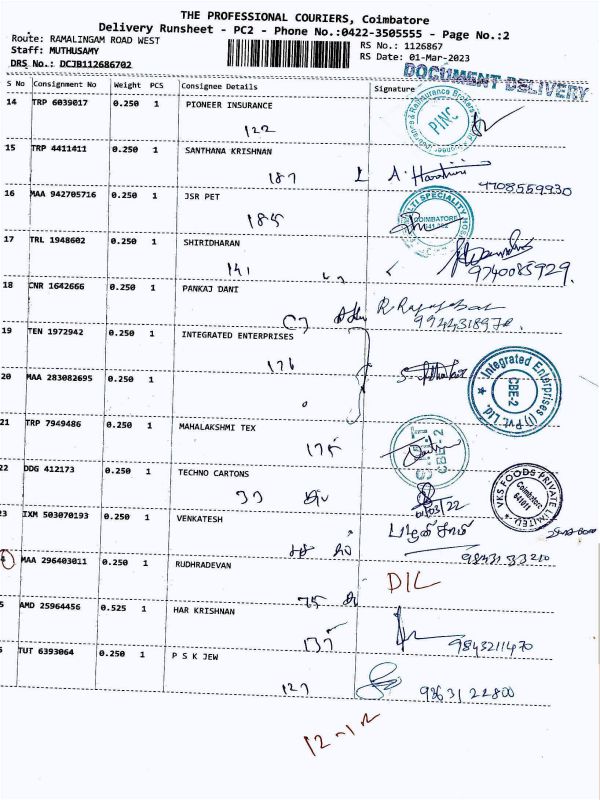 THE PROFESSIONAL COURIERS, Coimbatore
Delivery Runsheet - PC2 - Phone No.:0422-3505555 - Page No.:2
Route: RAMALINGAM ROAD WEST
RS No.: 1126867
Staff: MUTHUSAMY
RS Date: 01-Mar-2023
DRS No.: DCJB112686702
DOCUMENT DELIVERY
S No Consignment No Weight PCS Consignee Details Signature
14 TRP 6039017 0.250 1 PIONEER INSURANCE
PINC
122
15 TRP 4411411 0.250 1 SANTHANA KRISHNAN
187
4708559930
16 MAA 942705716 0.250 1 JSR PET
COIMBATORE
185
17 TRL 1948602 0.250 1 SHIRIDHARAN
141
9740085929.
18 CNR 1642666 0.250 1 PANKAJ DANI
19 TEN 1972942 0.250 1 INTEGRATED ENTERPRISES
176
Integrated Enterprises (I) Pvt Ltd.
CBE-2
20 MAA 283082695 0.250 1
21 TRP 7949486 0.250 1 MAHALAKSHMI TEX
175
CBE-2
22 DDG 412173 0.250 1 TECHNO CARTONS
33
01/03/22
VKS FOODS PRIVATE LIMITED
Coimbatore
641011
23 IXM 503070193 0.250 1 VENKATESH
பழனிசாமி
9843133210
4 MAA 296403011 0.250 1 RUDHRADEVAN
75
DIL
5 AMD 25964456 0.525 1 HAR KRISHNAN
137
9843211470
TUT 6393064 0.250 1 P S K JEW
127
9363122800